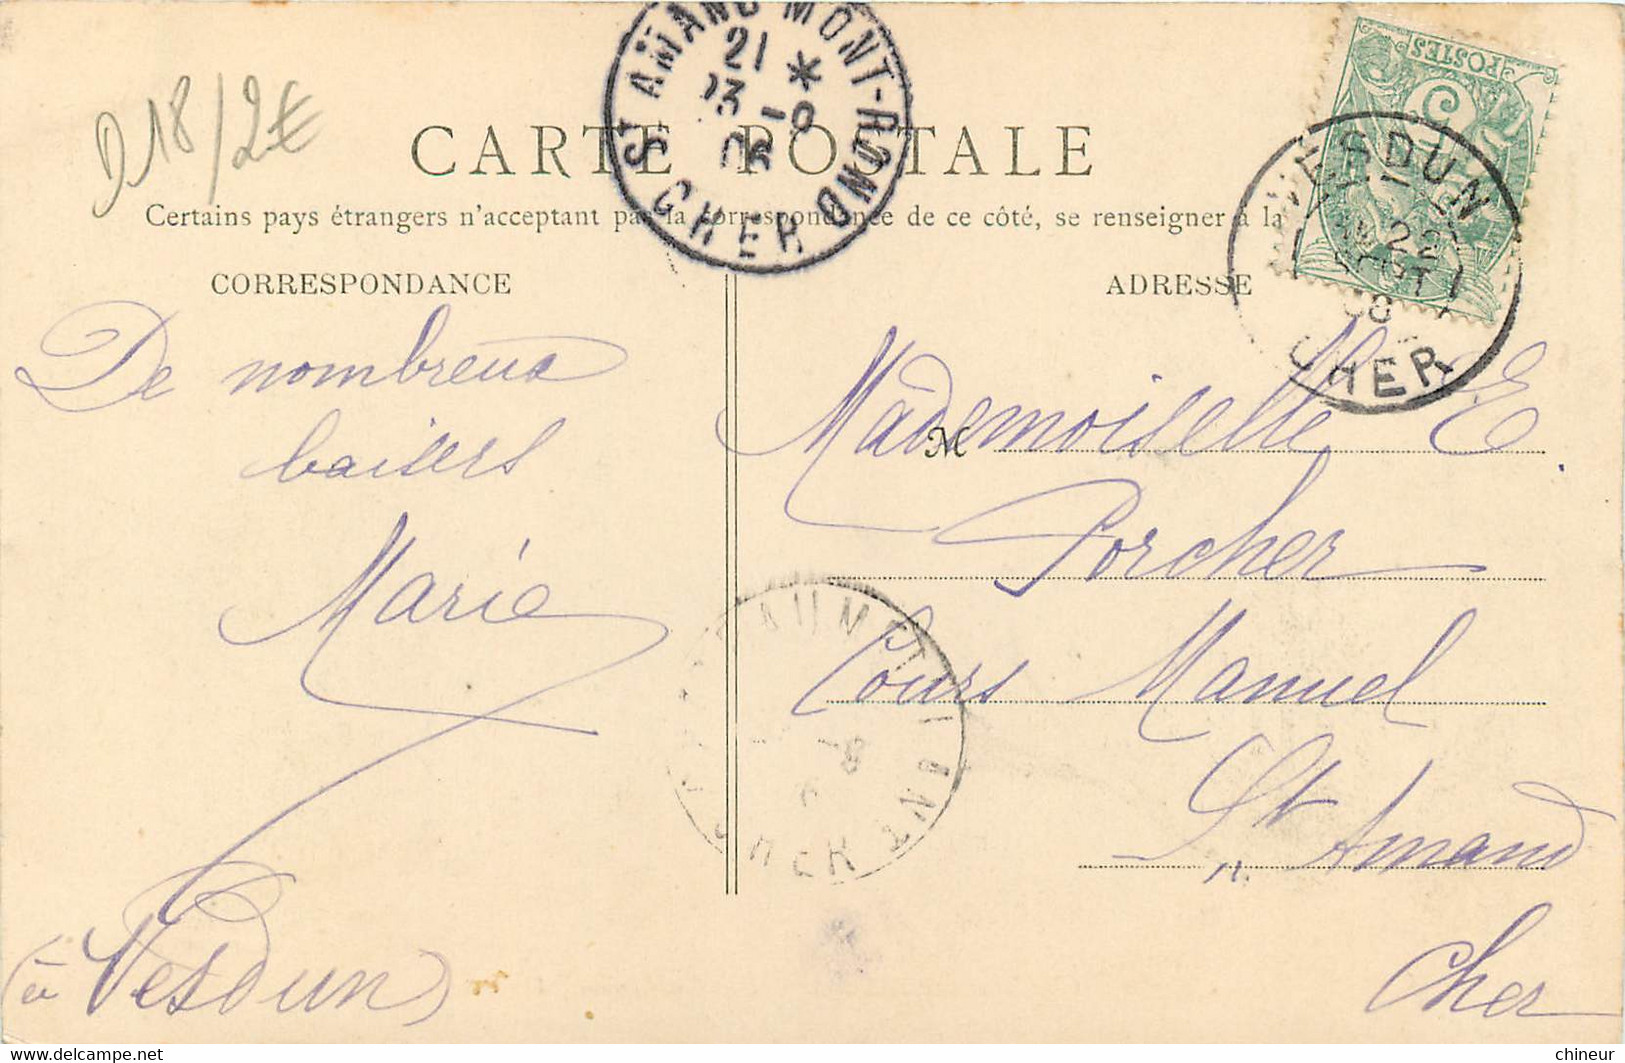 D18/2€
ST AMAND MONT-ROND
21 *
23 -8
06
CHER
POSTES
5
VESDUN
22
AOUT
CHER
CARTE POSTALE
Certains pays étrangers n'acceptant pas la correspondance de ce côté, se renseigner à la
CORRESPONDANCE
ADRESSE
De nombreux
baisers
Marie
(à Vesdun)
M
Mademoiselle E.
Porcher
Cours Manuel
St Amand
Cher
chineur
www.delcampe.net